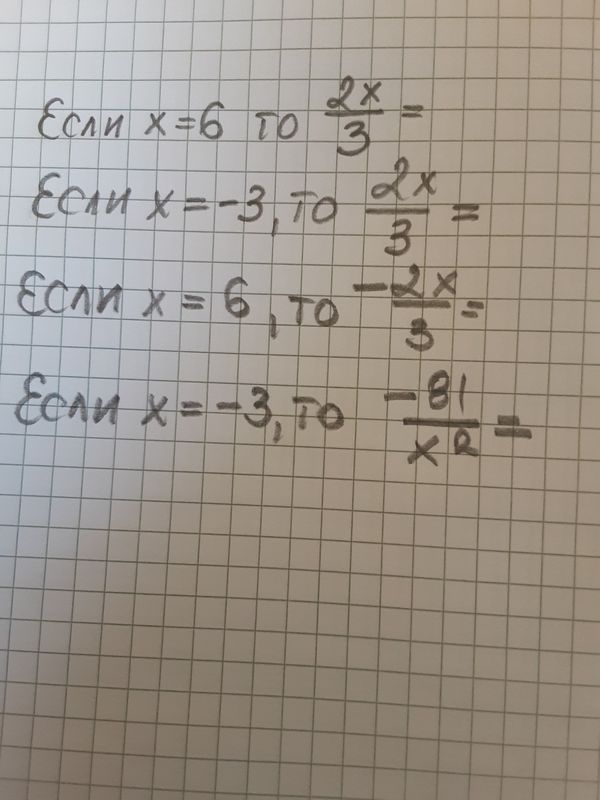 Если x=6 то 2x/3 =
Если x=-3, то 2x/3 =
Если x=6, то -2x/3 =
Если x=-3, то -81/x² =